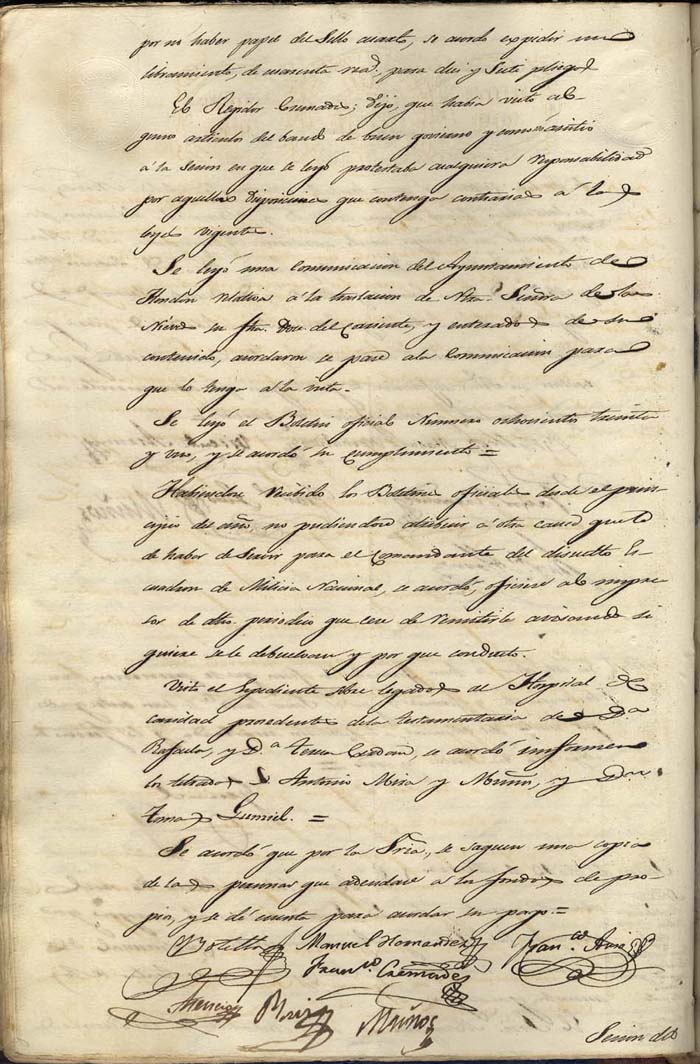 por no haber papel del Sello cuarto, se acordó expedir un
libramiento, de cuarenta rea.s para diez y siete pliegos
El Regidor Cremades; Dijo, que habia visto al-
gunos articulos del bando de buen govierno y como no asistió
á la sesion en que se leyó protestaba cualquiera responsabilidad
por aquellas disposiciones que contenga contrarias á las
leyes vigentes.
Se leyó una comunicacion del Ayuntamiento de
Hondon relativa á la traslacion de Ntra. Señora de las
Nieves su fha. Doce del corriente, y enterados de su
contenido, acordaron se pase á la Comunicacion para
que lo tenga á la vista.
Se leyó el Boletin oficial Numero ochocientos treinta
y uno, y se acordó su cumplimiento =
Habiendose recibido los Boletines oficiales desde el prin-
cipio del año no pudiendose atribuir á otra causa que la
de haber de servir para el Comandante del disuelto Es-
cuadron de Milicia Nacional, se acordó, oficiese al impre-
sor de dho. periodico que cese de remitirle avisando si
quiere se le debuelvan y por que conducto.
Visto el Espediente sobre legados al Hospital de
caridad procedente de la testamentaria de D.a
Rafaela, y D.a Teresa se acordó informen
los letrados D. Antonio Mira y y Don
Tomas Gumiel. =
Se acordó que por la Sria., se saquen una copia
de las personas que adeudan á los fondos de pro-
pios, y se dé cuenta para acordar su pago. =
Botella Manuel Hernandez Fran.co
Fran.co Cremades
Muños
Sesion del